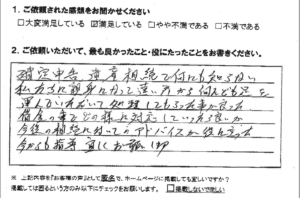 1. ご依頼された感想をお聞かせください
□大変満足している ☑満足している □やや不満である □不満である
2. ご依頼いただいて、最も良かったこと・役にたったことをお書きください。
確定申告 遺産相続で何にも知らない
私たちに親身になって遠い所から何んども足を
運んでいただいて処理してもらった事が良かった
今後の相続に対してのアドバイスが役に立った
今からも指導 宜しくお願い
※ 上記内容を「お客様の声」として匿名で、ホームページに掲載しても宜しいですか?
掲載しては困るという方のみ以下にチェックをお願いします。 □掲載しないでほしい